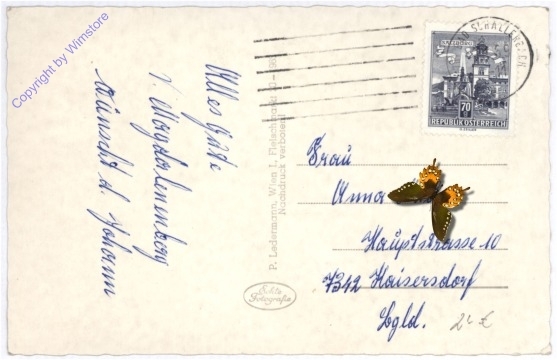 Copyright by Wimstore
Alles Gute
v. Magdalenenberg
wünscht d. Johann
P. Ledermann, Wien I, Fleischmarkt
Nachdruck verboten
Echte
Fotografie
BAD SCHALLERBACH
SALZBURG
70
REPUBLIK ÖSTERREICH
Frau
Anna
Hauptstrasse 10
7342 Kaisersdorf
Bgld.
2.- €